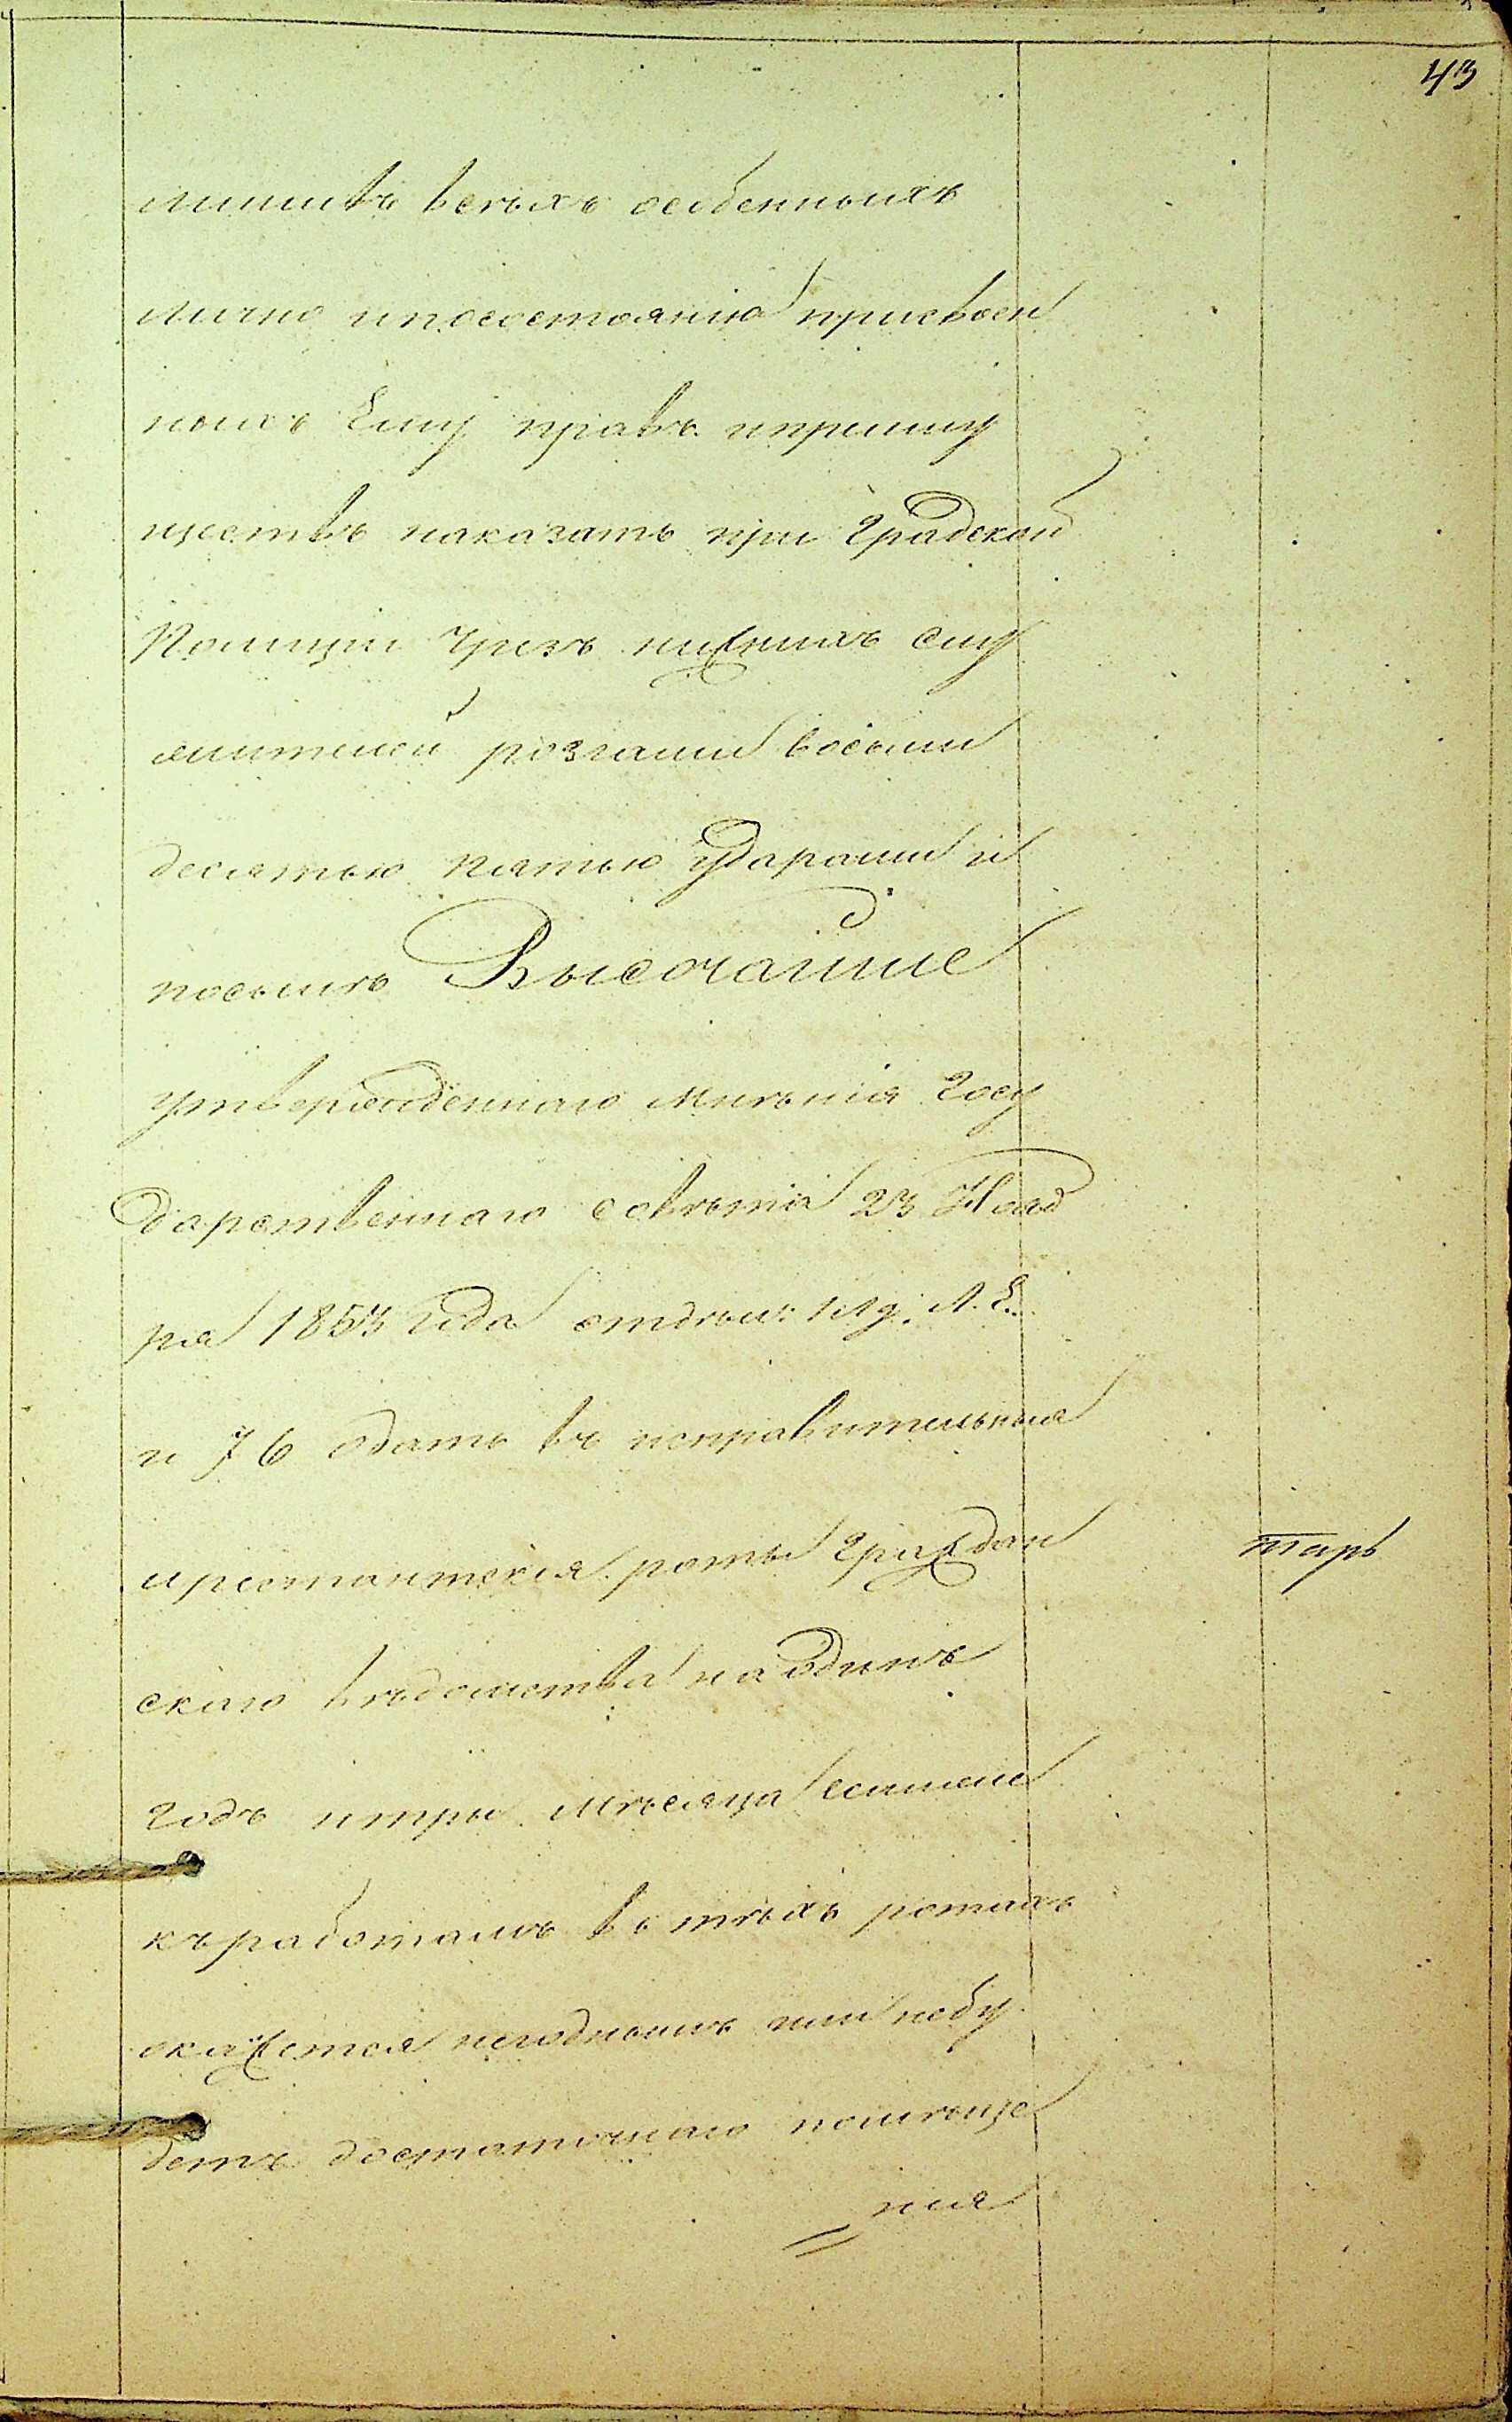 43
лишивъ всѣхъ особенныхъ
лично и посостоянію присвоен
ныхъ Ему правъ ипреиму
ществъ наказать при Градской
Полиціи чрезъ нижнихъ слу
жителей розгами восьми
десятью пятью ударами и
посилѣ Высочайше
утвержденнаго мнѣнія Госу
дарственнаго совѣта 23 Нояб
ря 1853 года отдѣл:
и 76 отдать въ исправительныя
арестантскія роты Граждан
скаго вѣдомства на одинъ
годъ итри мѣсяца еслиже
къ работамъ въ тѣхъ ротахъ
окажется негоднымъ или небу
детъ достаточнаго помѣще
нія
тарь